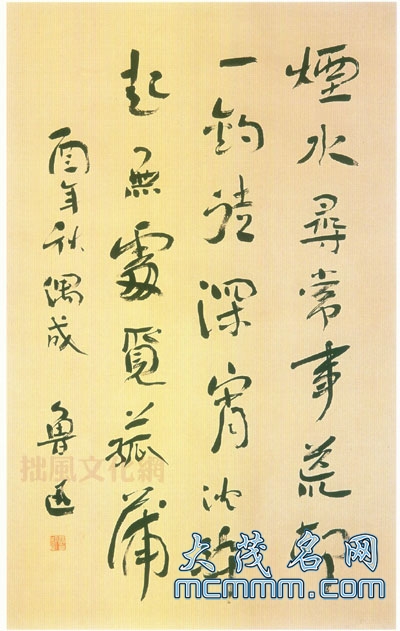 煙水尋常事荒邨
一釣徒深宵沈醉
起無處覓菰蒲
酉年秋偶成 魯迅
拙風文化網
大茂名网
mcmmm.com